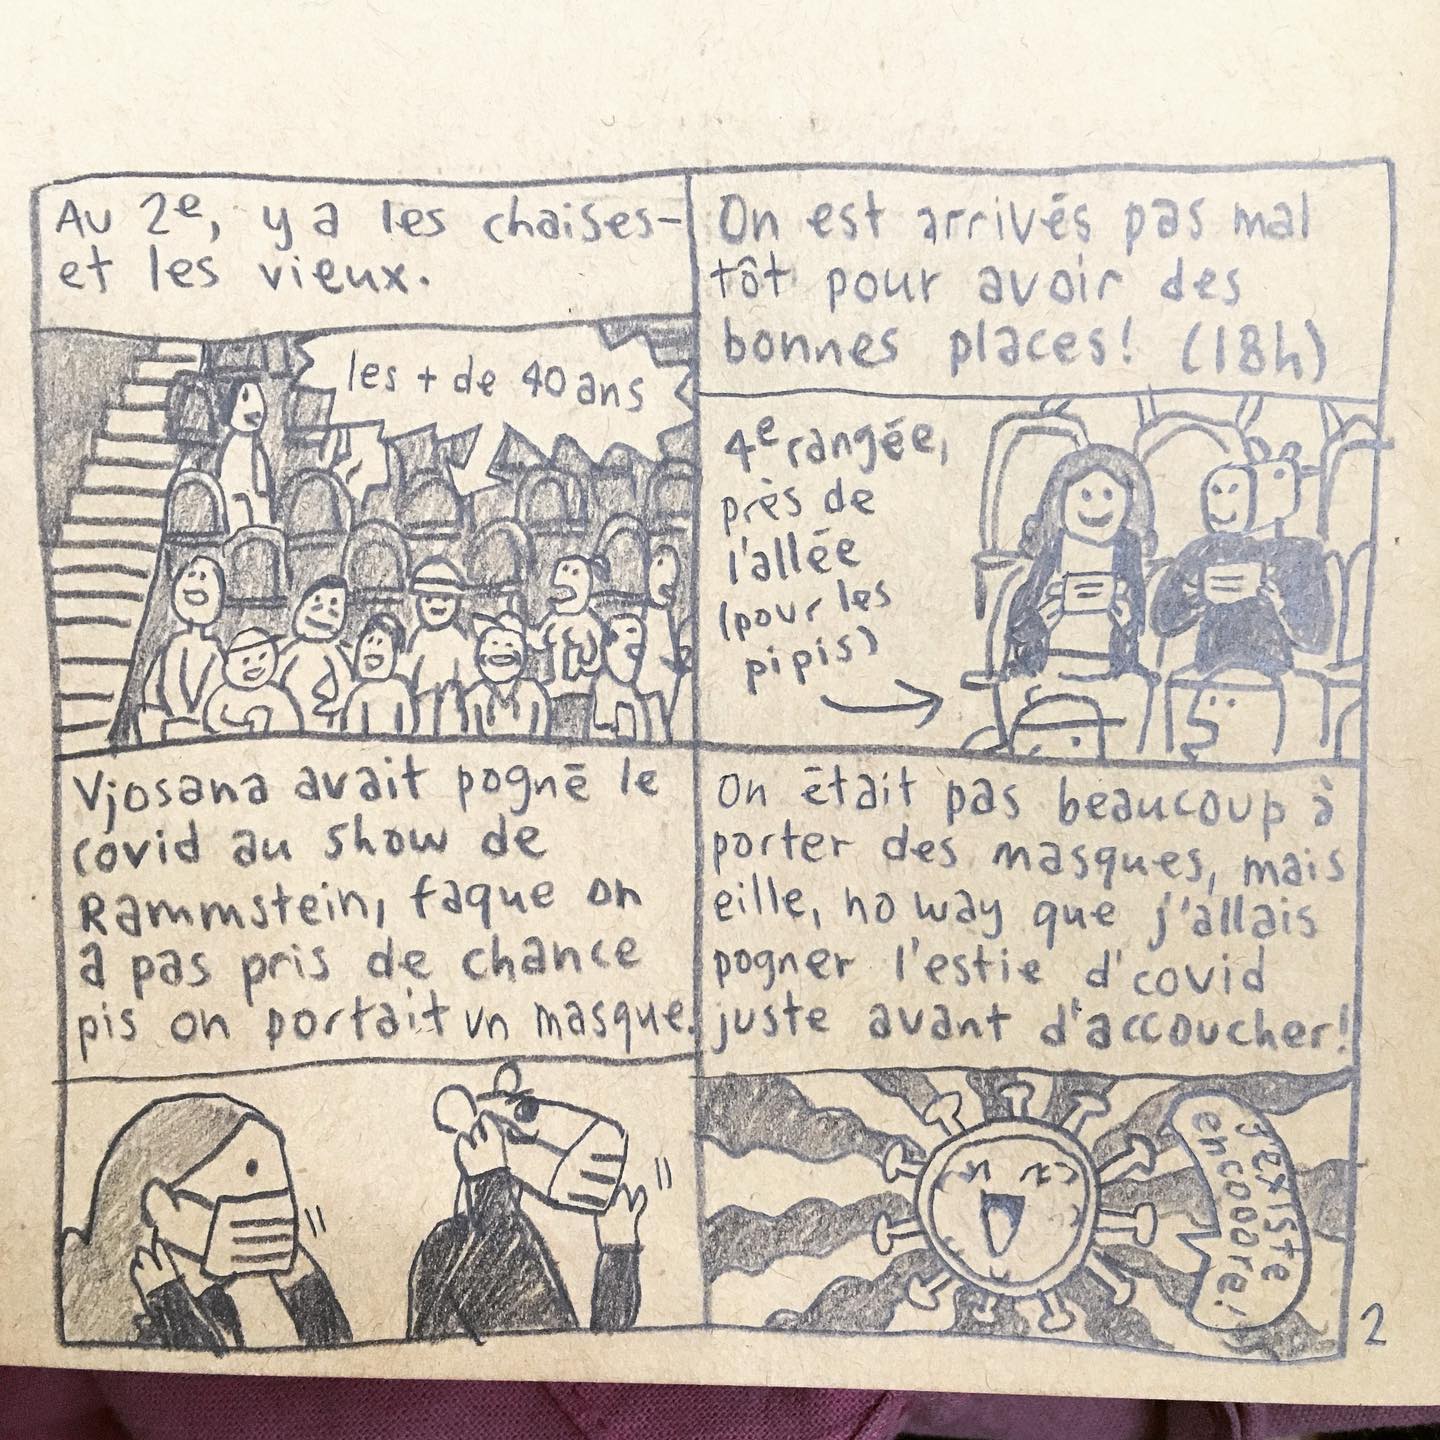 Au 2e, y a les chaises-
et les vieux.
les + de 40 ans
On est arrivés pas mal
tôt pour avoir des
bonnes places! (18h)
4e rangée,
près de
l'allée
(pour les
pipis)
Vjosana avait pogné le
covid au show de
Rammstein, faque on
a pas pris de chance
pis on portait un masque.
On était pas beaucoup à
porter des masques, mais
eille, no way que j'allais
pogner l'estie d'covid
juste avant d'accoucher!
J'existe
encooore!
2